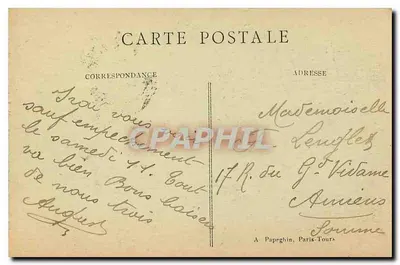 CARTE POSTALE
CORRESPONDANCE
J'irai vous voir
sauf empêchement
le samedi 11. Tout
va bien. Bons baisers
de nous trois
August
ADRESSE
Mademoiselle
Lenglet
17 R. du Gd Vidame
Amiens
Somme
A Papeghin, Paris-Tours
CPAPHIL